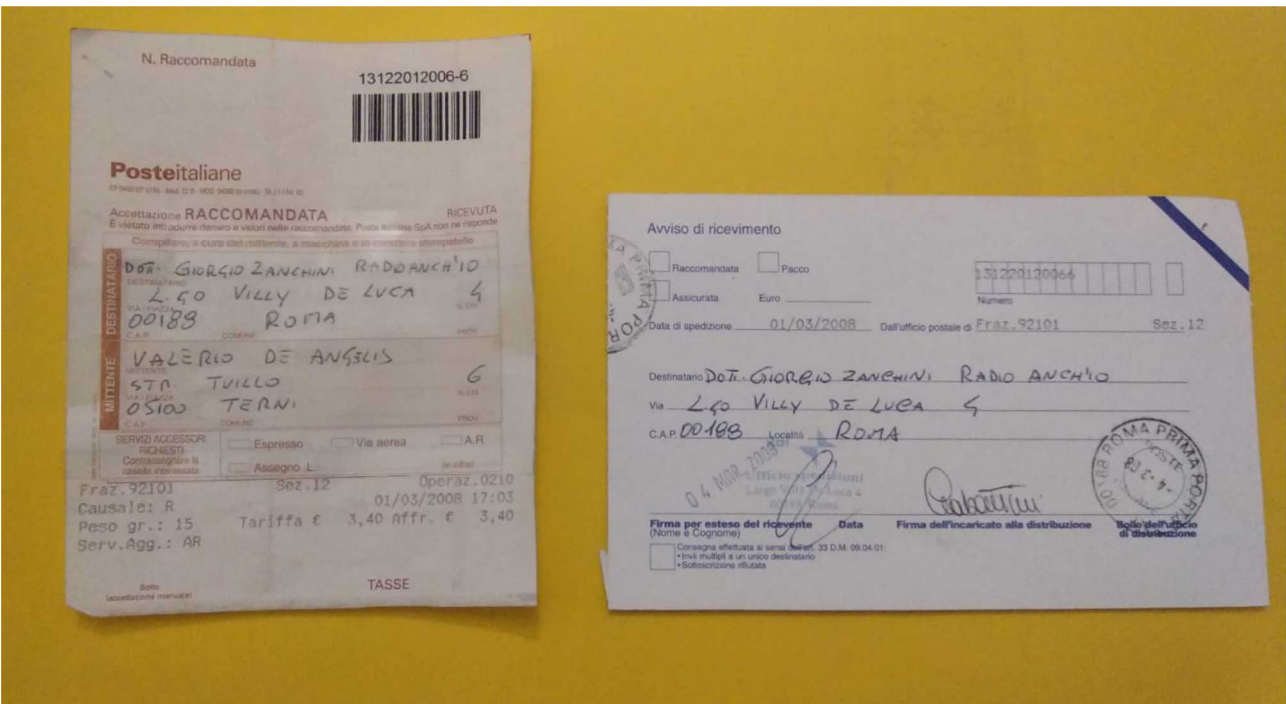 N. Raccomandata
13122012006-6
Posteitaliane
Accettazione RACCOMANDATA RICEVUTA
È vietato introdurre denaro e valori nelle raccomandate. Poste Italiane SpA non ne risponde
Compilare, a cura del mittente, a macchina o in carattere stampatello
DESTINATARIO
DOTT. GIORGIO ZANCHINI RADIOANCH'IO
DESTINATARIO
L.GO VILLY DE LUCA 4
VIA / PIAZZA N. CIV.
00188 ROMA
C.A.P. COMUNE PROV.
MITTENTE
VALERIO DE ANGELIS
MITTENTE
STR TUILLO 6
VIA / PIAZZA N. CIV.
05100 TERNI
C.A.P. COMUNE PROV.
SERVIZI ACCESSORI
RICHIESTI
Contrassegnare la
casella interessata
Espresso Via aerea A.R.
Assegno L. (in cifre)
Fraz.92101 Sez.12 Operaz.0210
Causale: R 01/03/2008 17:03
Peso gr.: 15 Tariffa € 3,40 Affr. € 3,40
Serv.Agg.: AR
Bollo
(accettazione manuale)
TASSE
Avviso di ricevimento
Raccomandata Pacco
131220120066
Assicurata Euro Numero
Data di spedizione 01/03/2008 Dall'ufficio postale di Fraz.92101 Sez.12
Destinatario DOTT. GIORGIO ZANCHINI RADIO ANCH'IO
Via L.GO VILLY DE LUCA 4
C.A.P. 00188 Località ROMA
04 MAR. 2008
Ufficio spedizioni
Largo Villy De Luca 4
00188 Roma
00188 ROMA PRIMA PORTA
POSTE
-4-3-08
Firma per esteso del ricevente Data Firma dell'incaricato alla distribuzione Bollo dell'ufficio
(Nome e Cognome) di distribuzione
Consegna effettuata ai sensi dell'art. 33 D.M. 09.04.01:
• Invii multipli a un unico destinatario
• Sottoscrizione rifiutata